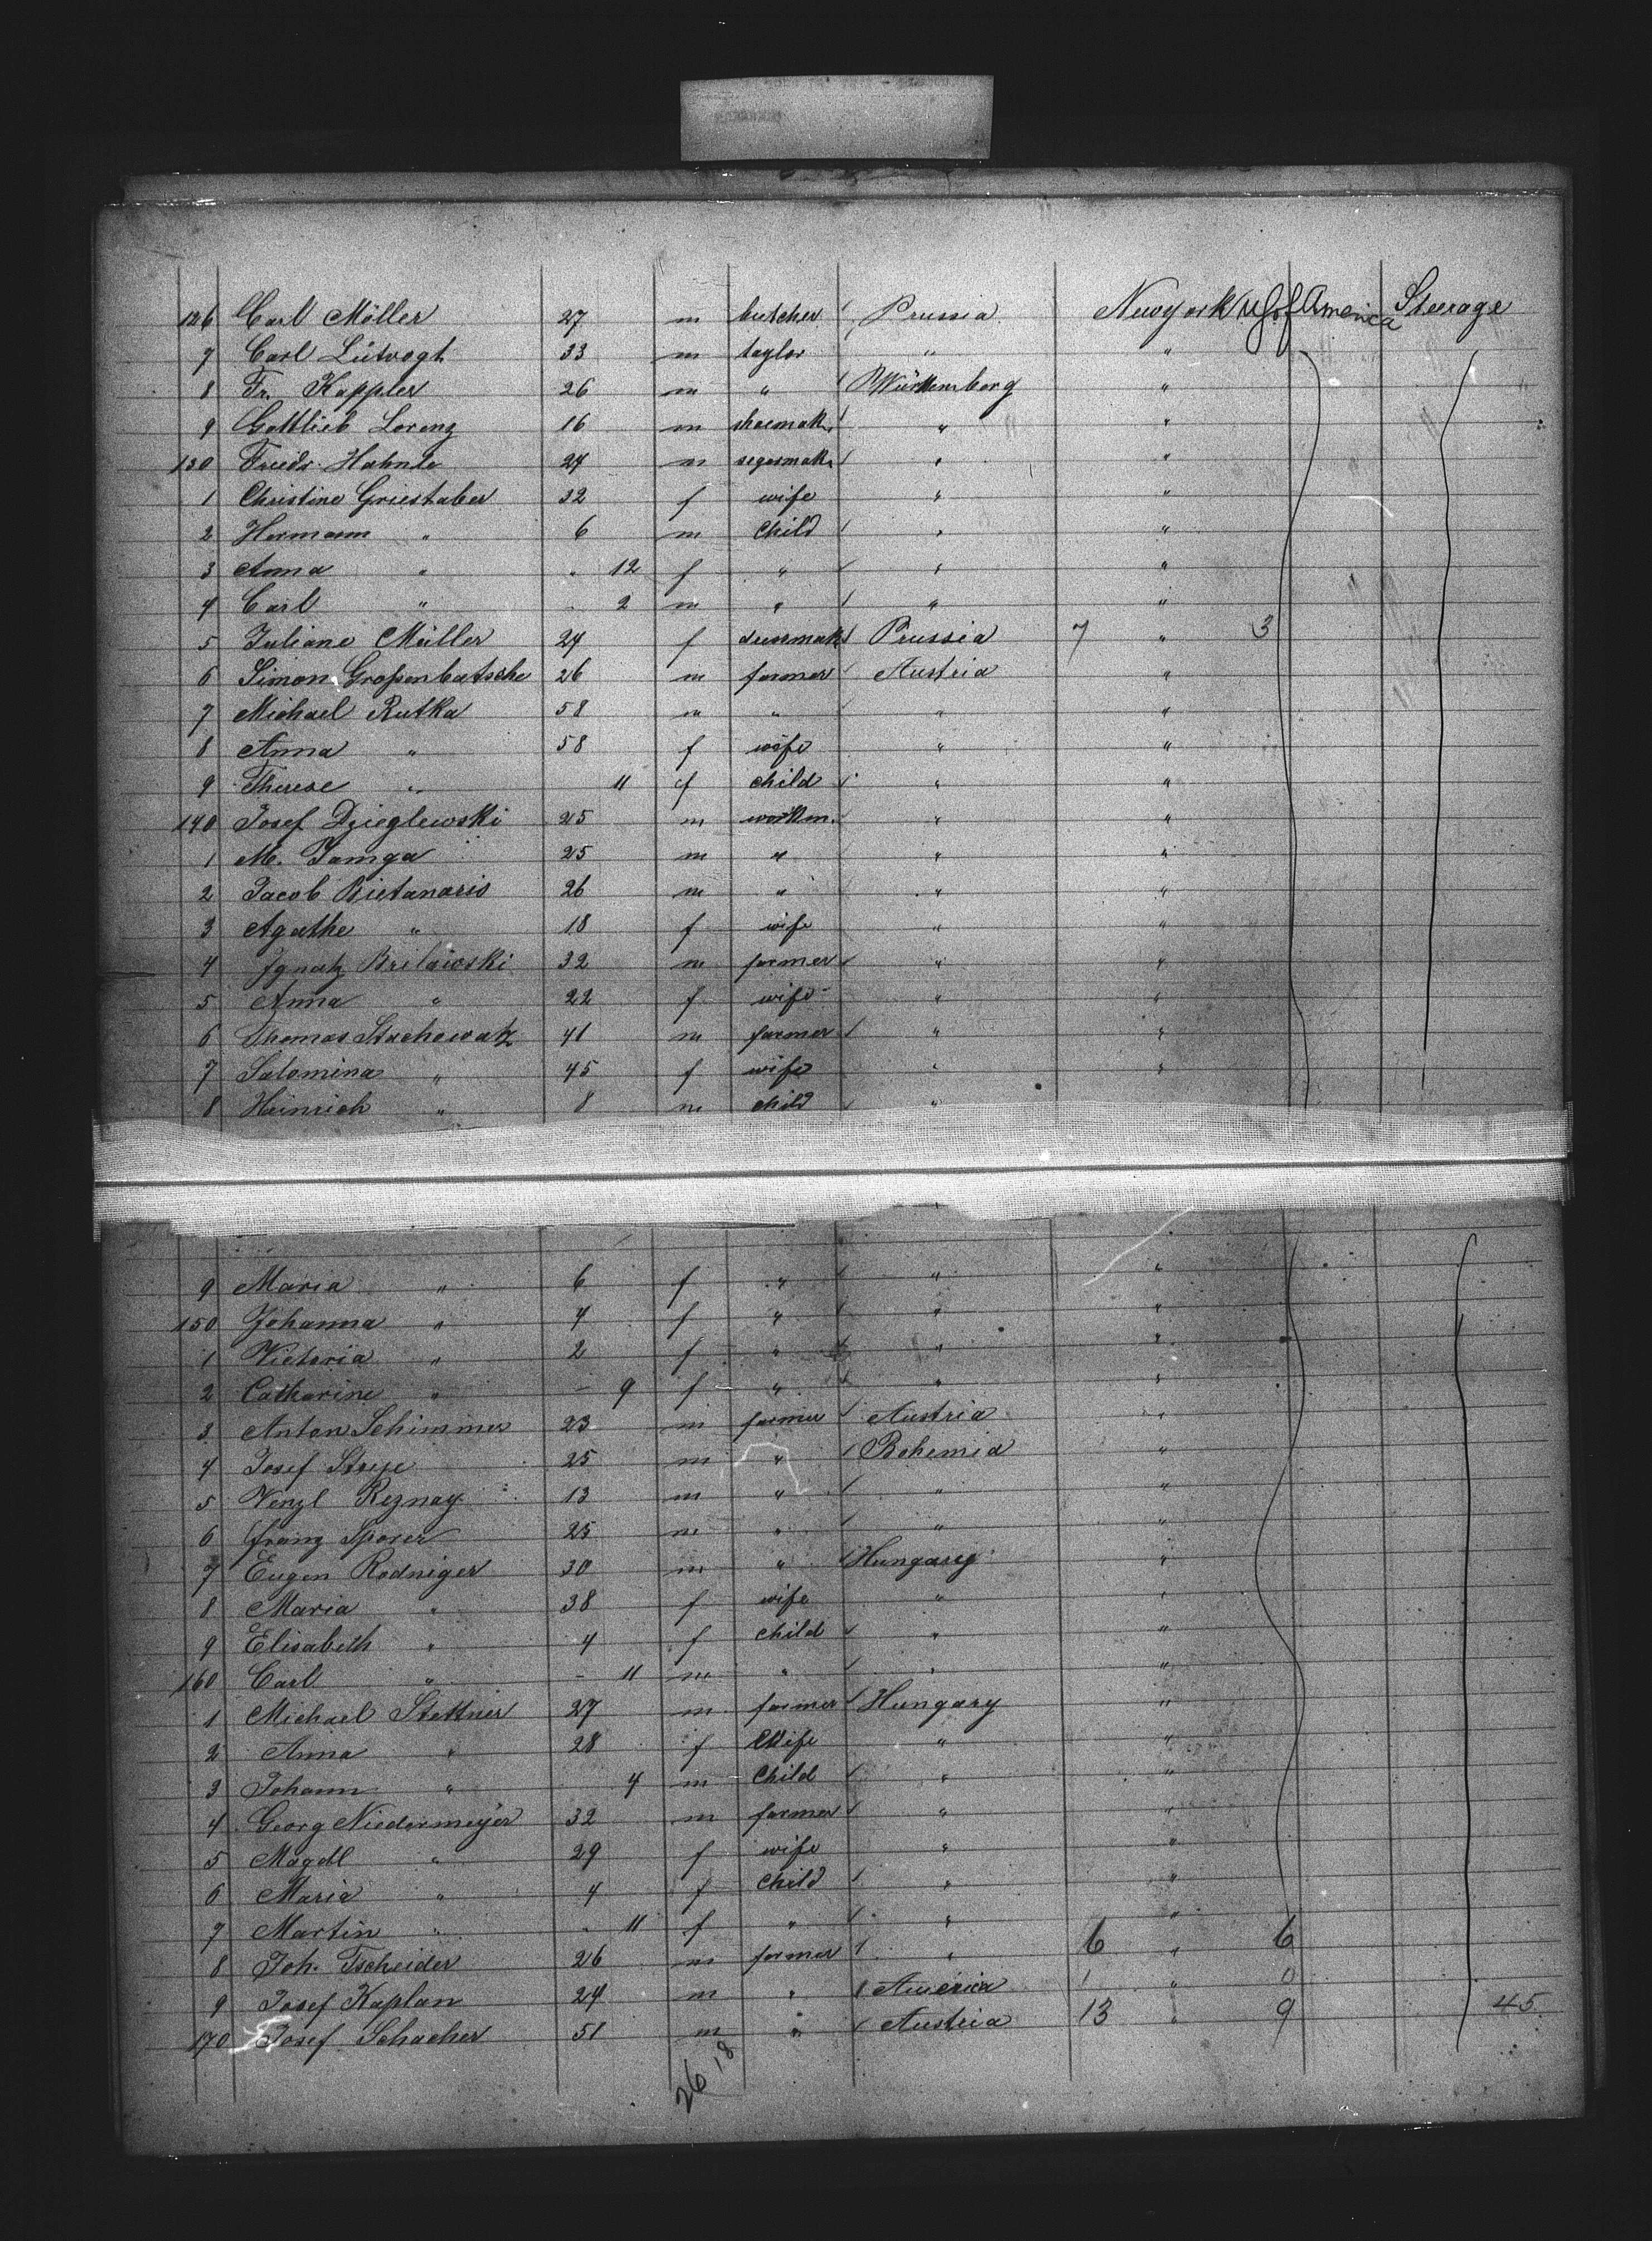 126 Carl Möller 27 m butcher Prussia Newyork US of America Steerage
7 Carl Lütvogt 33 m taylor " "
8 Fr. Kappler 26 m " Württemberg "
9 Gottlieb Lorenz 16 m shoemak. " "
130 Friedr. Hahnle 24 m segarmak. " "
1 Christine Griestaber 32 f wife " "
2 Hermann " 6 m Child " "
3 Anna " " 12 f " " "
4 Carl " " 2 m " " "
5 Juliane Müller 24 f dressmak Prussia 7 " 3
6 Simon Großenbatsche 26 m farmer Austria "
7 Michael Rutka 58 m " " "
8 Anna " 58 f wife " "
9 Therese " 11 f child " "
140 Josef Dzieglewski 25 m workm. " "
1 M. Jamga 25 m " " "
2 Jacob Bietanario 26 m " " "
3 Agathe " 18 f wife " "
4 Ignatz Brilawski 32 m farmer " "
5 Anna " 22 f wife " "
6 Thomas Stachowatz 41 m farmer " "
7 Salomina " 45 f wife " "
8 Heinrich " 8 m child "
9 Maria " 6 f " " "
150 Johanna " 4 f " " "
1 Victoria " 2 f " " "
2 Catharine " - 9 f " " "
3 Anton Schimmer 23 m farmer Austria "
4 Josef Streje 25 m " Bohemia "
5 Wenzl Reznay 13 m " " "
6 Franz Sporer 25 m " " "
7 Eugen Rodniger 30 m " Hungary "
8 Maria " 38 f wife " "
9 Elisabeth " 4 f child " "
160 Carl " - 11 m " " "
1 Michael Stettner 27 m farmer Hungary "
2 Anna " 28 f Wife " "
3 Johann " 4 m Child " "
4 Georg Niedermeyer 32 m farmer " "
5 Magdl " 29 f wife " "
6 Maria " 4 f Child " "
7 Martin " " 11 f " " "
8 Joh. Tscheider 26 m farmer " 6 " 6
9 Josef Kaplan 24 m " America 1 " 0
170 Josef Schacher 51 m " Austria 13 " 9 45
26 18